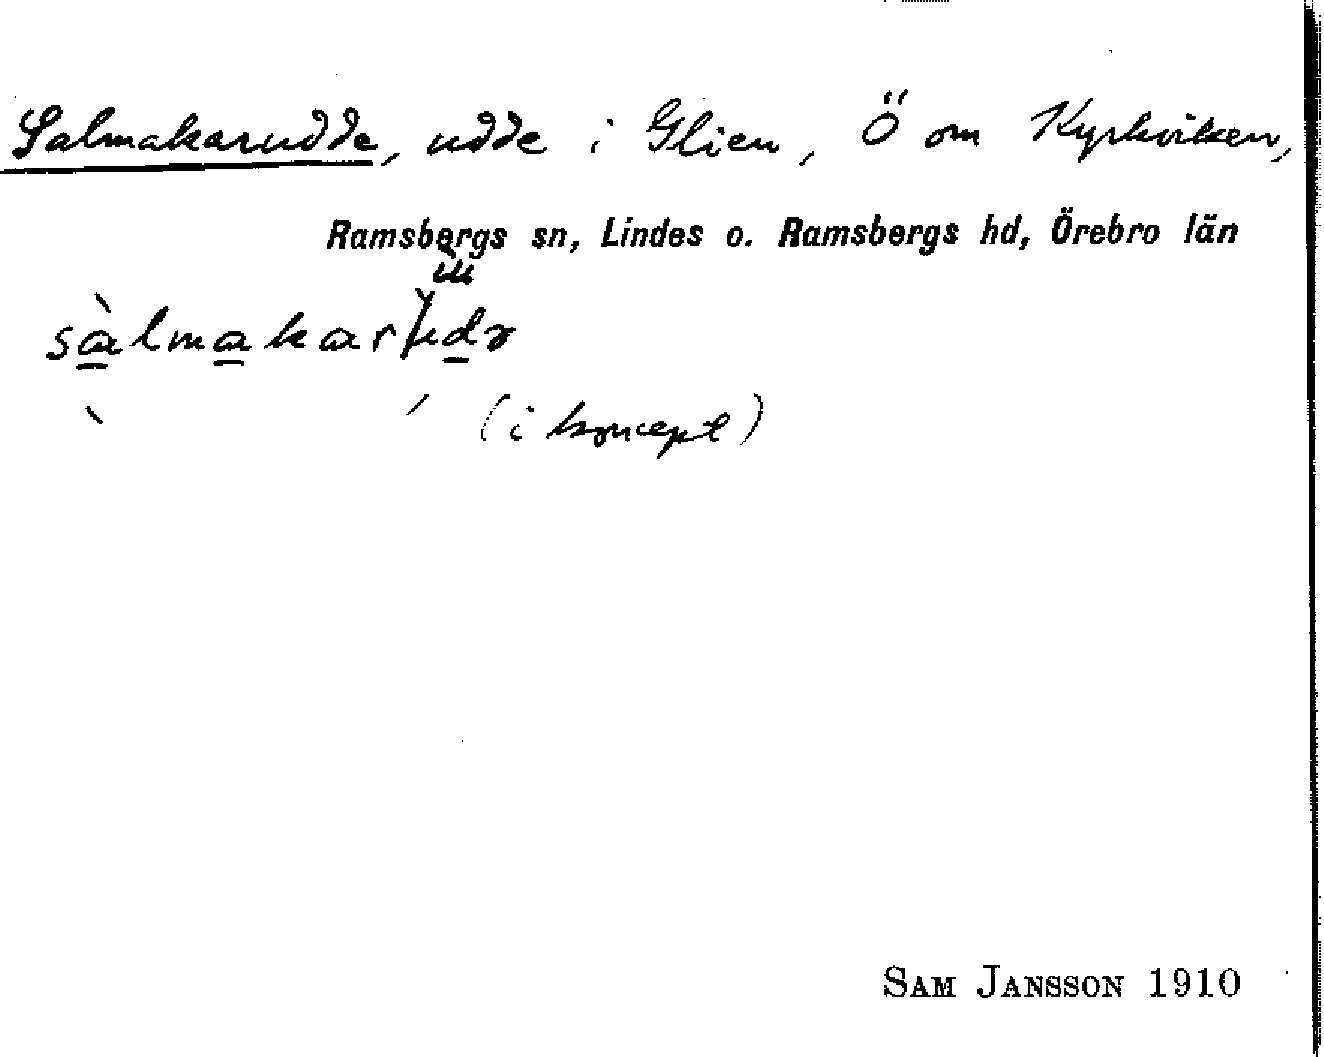 Salmakarudde, udde i Glien, Ö om Kyrkviken,
Ramsbergs sn, Lindes o. Ramsbergs hd, Örebro län
(i koncept)
SAM JANSSON 1910